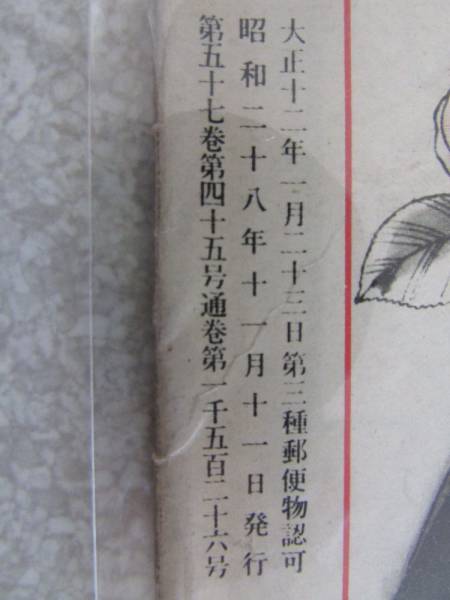 大正十二年一月二十三日第三種郵便物認可
昭和二十八年十一月十一日発行
第五十七巻第四十五号通巻第一千五百二十六号